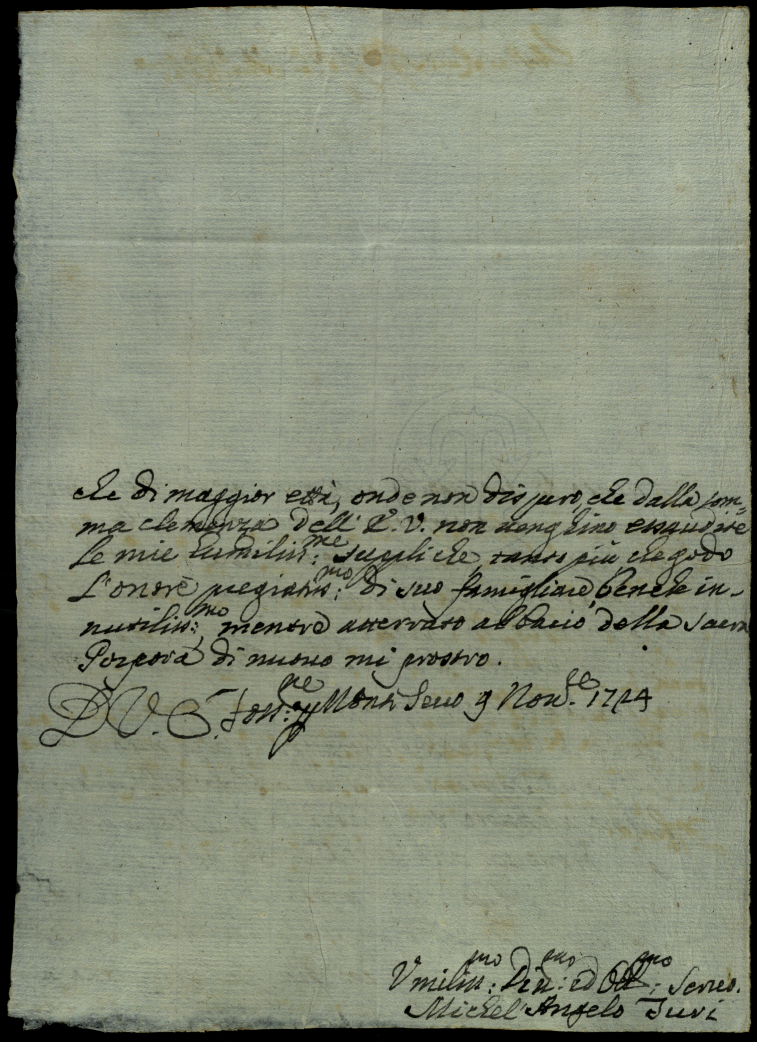 che di maggior età, onde non dispero, che dalla som=
ma clemenza dell' E. V. non venghino essaudite
le mie humiliss:me suppliche, tanto più che godo
L'onore pregiatiss:mo di suo famigliare, benche in=
nutiliss:mo, mentre atterrato al bacio della sacra
Porpora di nuovo mi prostro.
D. V. E. Foss:ne Monte Seco 9 Nov.e 1724
Vmiliss:mo Div:mo ed Obl:mo Servo.
Michel' Angelo